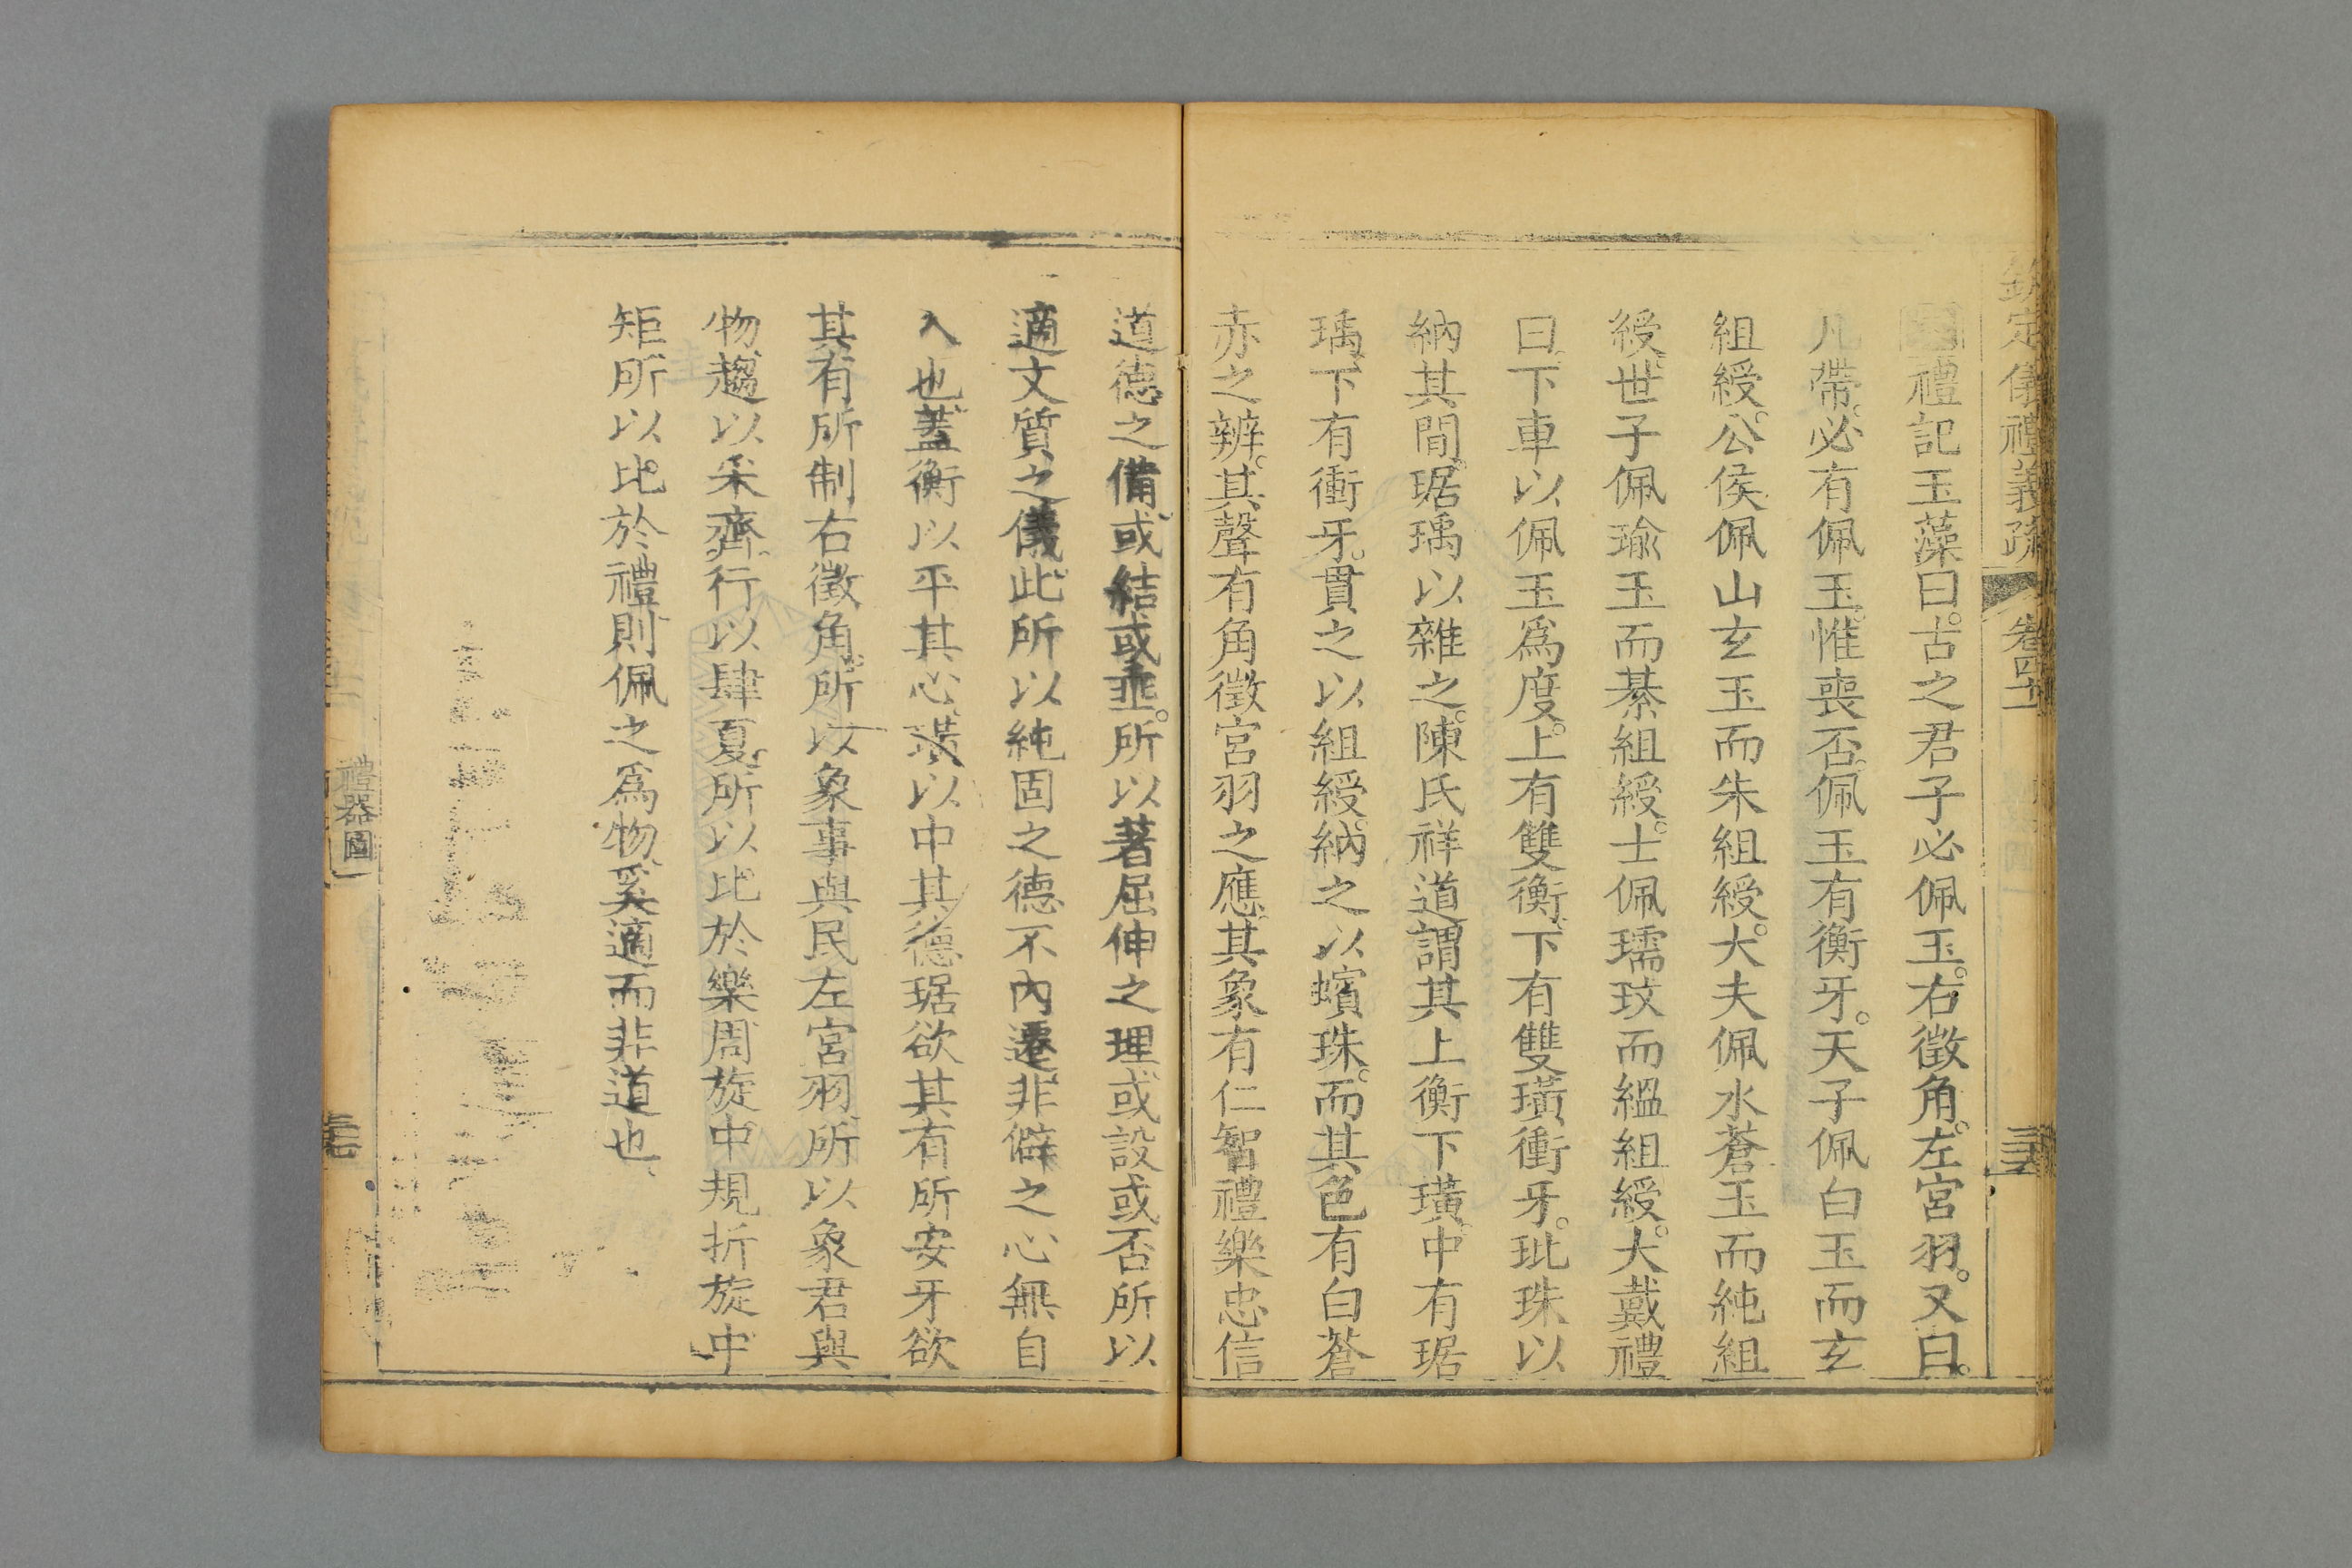 欽定儀禮義疏 卷四十
禮記玉藻曰。古之君子必佩玉。右徵角。左宮羽。又曰。
凡帶。必有佩玉。惟喪否。佩玉有衡牙。天子佩白玉而玄
組綬。公侯佩山玄玉而朱組綬。大夫佩水蒼玉而純組
綬。世子佩瑜玉而綦組綬。士佩瓀玟而縕組綬。大戴禮
曰。下車以佩玉爲度。上有雙衡。下有雙璜衝牙。玭珠以
納其間。琚瑀以雜之。陳氏祥道謂其上衡下璜。中有琚
瑀。下有衝牙。貫之以組綬。納之以蠙珠。而其色有白蒼
赤之辨。其聲有角徵宮羽之應。其象有仁智禮樂忠信
道德之備。或結或垂。所以著屈伸之理。或設或否。所以
適文質之儀。此所以純固之德不內遷。非僻之心無自
入也。蓋衡以平其心。璜以中其德。琚欲其有所安。牙欲
其有所制。右徵角。所以象事與民。左宮羽。所以象君與
物。趨以采齊。行以肆夏。所以比於樂。周旋中規。折旋中
矩。所以比於禮。則佩之爲物。奚適而非道也。
禮器圖